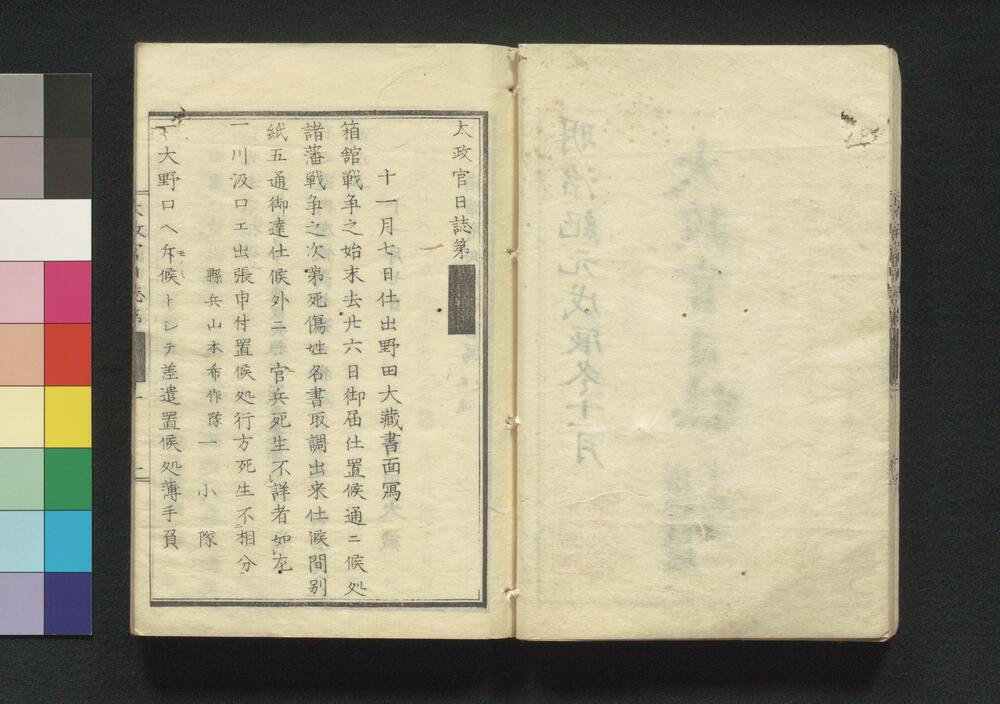 太政官日誌第
十一月七日仕出野田大藏書面寫
箱館戦争之始末去廿六日御届仕置候通ニ候処
諸藩戦争之次第死傷姓名書取調出来仕候間別
紙五通御達仕候外ニ官兵死生不詳者如左
一川汲口エ出張申付置候処行方死生不相分
縣兵山本希作隊一小隊
一大野口ヘ斥候トシテ差遣置候処薄手負
モノミ